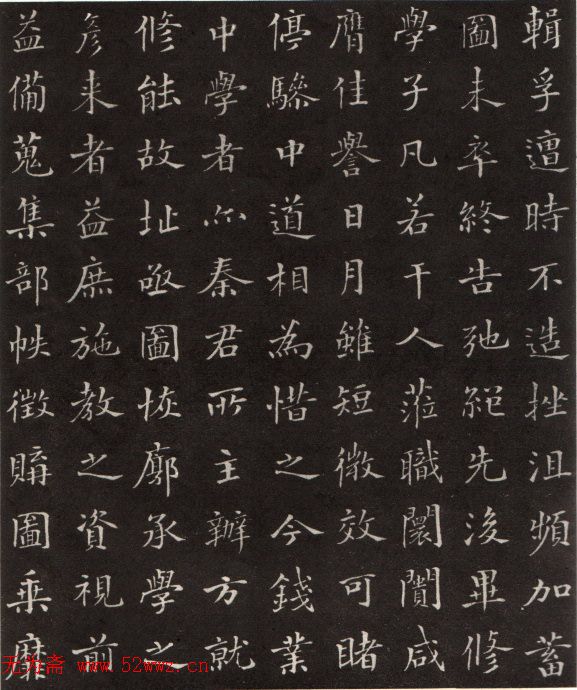 輯孚邅時不造挫沮頻加蓄
圖未卒終告弛絕先後畢修
學子凡若干人蒞職闤闠咸
膺佳譽日月雖短微效可睹
停驂中道相為惜之今錢業
中學者亦秦君所主辦方就
修能故址亟圖恢廓承學之
彥来者益庶施教之資視前
益備蒐集部帙徵購圖乘麻
无为斋 www.52wwz.cn